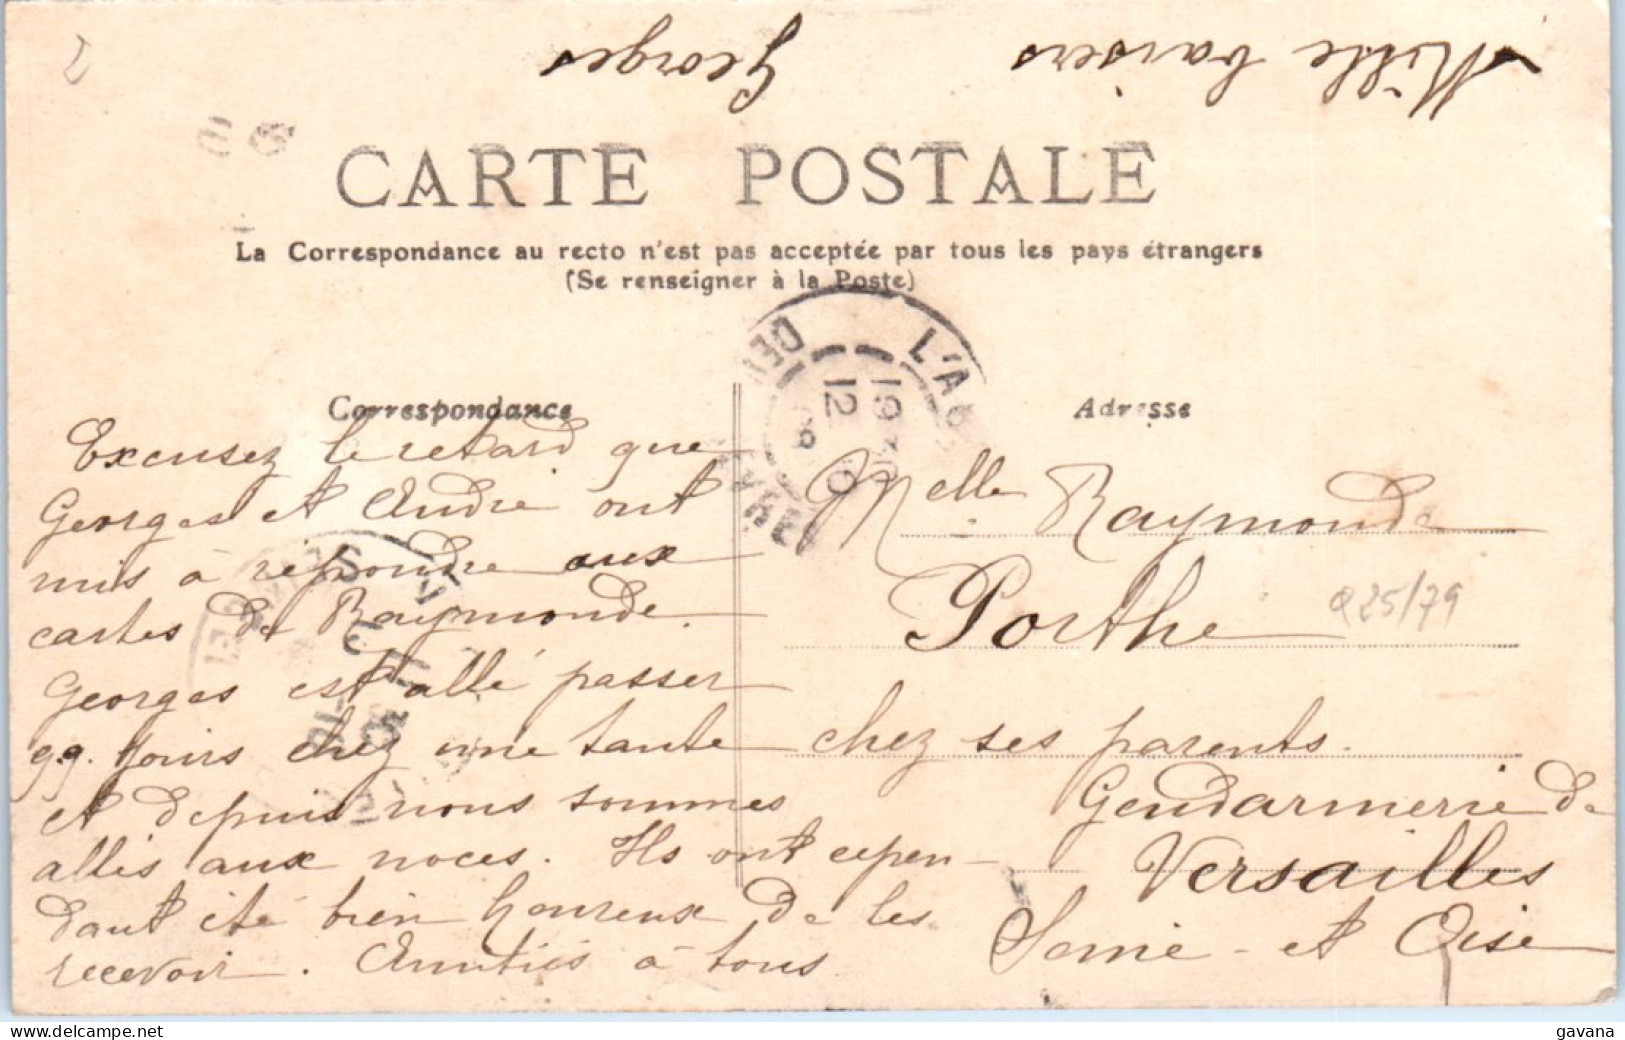 Mille baisers
Georges
CARTE POSTALE
La Correspondance au recto n'est pas acceptée par tous les pays étrangers
(Se renseigner à la Poste)
Correspondance
Excusez le retard que
Georges et André ont
mis à répondre aux
cartes de Raymonde.
Georges est allé passer
qq. jours chez une tante
et depuis nous sommes
allés aux noces. Ils ont cepen-
dant été bien heureux de les
recevoir. Amitiés à tous
Adresse
Melle Raymonde
Porthe
chez ses parents.
Gendarmerie de
Versailles
Seine-et Oise
Q25/79
L'AB
19 30
12 8 10
gavana